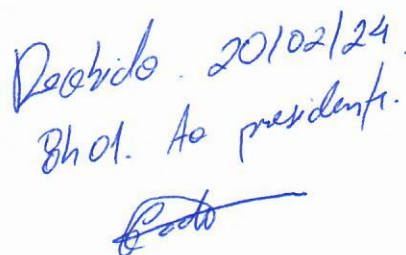 Recebido. 20/02/24.
8h01. Ao presidente.